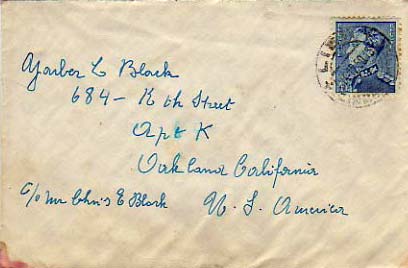 Yarber C Black
684 - K th Street
Apt K
Oakland California
c/o Mr Chris E Black U. S. America